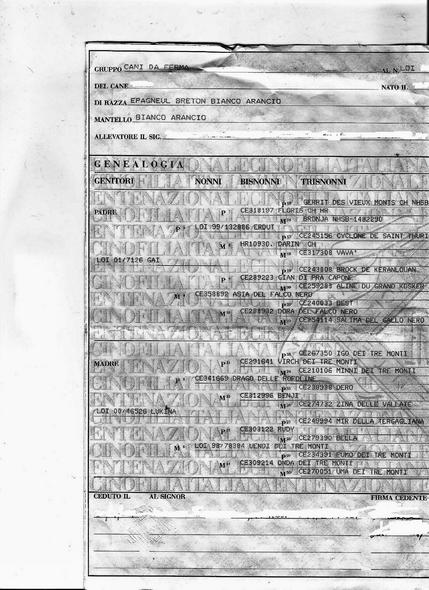 GRUPPO CANI DA FERMA AL N. LOI
DEL CANE NATO IL
DI RAZZA EPAGNEUL BRETON BIANCO ARANCIO
MANTELLO BIANCO ARANCIO
ALLEVATORE IL SIG.
GENEALOGIA
GENITORI NONNI BISNONNI TRISNONNI
GERRIT DES VIEUX MONTS CH NHSB
PADRE P CE318197 FLORIS CH HH
M BRONJA NHSB-1482290
P LOI 99/132886 EROUT
P CE245156 CYCLONE DE SAINT THURI
M HR10930. DARIN CH
M CE317308 VAVA'
LOI 01/7126 GAI
P CE243808 BROCK DE KERANLOUAN
P CE289223 GIAN DI PRA CAPONE
M CE259281 ALINE DU GRAND KOSKER
M CE358892 ASIA DEL FALCO NERO
P CE240033 BEST
M CE288982 DORA DEL FALCO NERO
M CE254114 SALIMA DEL GALLO NERO
P CE267350 IGO DEI TRE MONTI
MADRE P CE291641 VIRCH DEI TRE MONTI
M CE210106 MINNI DEI TRE MONTI
P CE341669 DRAGO DELLE ROFOLINE
P CE238938 DERO
M CE312996 BENJI
M CE274732 ZINA DELLE VALLATE
LOI 00/46526 LUKINA
P CE249994 MIR DELLA TERGAGLIANA
P CE303122 RUDY
M CE279390 BELLA
M LOI 98/78384 UENDI DEI TRE MONTI
P CE234391 FUMO DEI TRE MONTI
M CE309214 ONDA DEI TRE MONTI
M CE270051 UMA DEI TRE MONTI
CEDUTO IL AL SIGNOR FIRMA CEDENTE